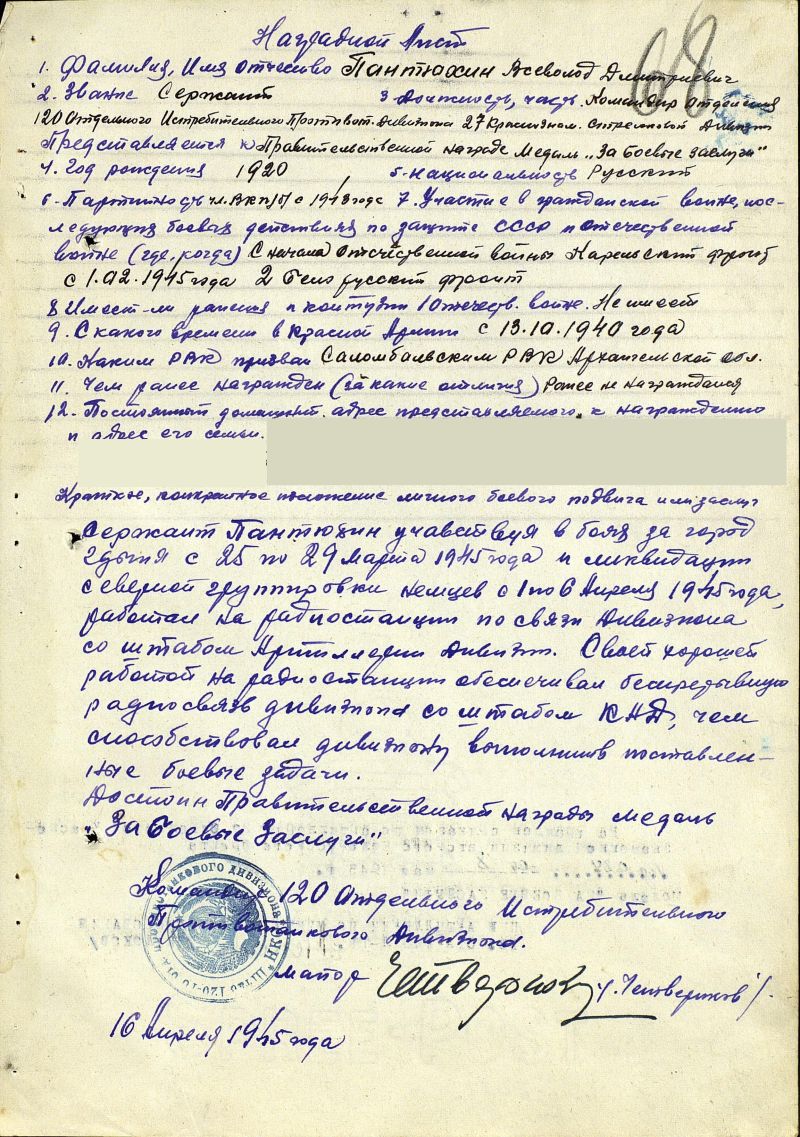 68
Наградной Лист
1. Фамилия, Имя отчество Пантюхин Всеволод Дмитриевич
2. Звание Сержант 3 Должность, часть Командир отделения
120 Отдельного Истребительного Противот. Дивизиона 27 Краснознам. стрелковой Дивизии
Представляется к Правительственной награде Медаль „За боевые заслуги"
4. Год рождения 1920 5. Национальность Русский
6. Партийность чл. ВКП/б/ с 1943 года 7. Участие в гражданской войне, пос-
ледующих боевых действиях по защите СССР и отечественной
войне (где, когда) С начала отечественной войны Карельский фронт
с 1.02.1945 года 2 Белорусский фронт
8 Имеет-ли ранения и контузии в отечеств. войне. Не имеет
9. С какого времени в Красной Армии с 13.10.1940 года
10. Каким РВК призван Саломбальским РВК Архангельской обл.
11. Чем ранее награжден (за какие отличия) Ранее не награждался
12. Постоянный домашний адрес представляемого к награждению
и адрес его семьи.
Краткое, конкретное изложение личного боевого подвига или заслуг
Сержант Пантюхин участвуя в боях за город
Гдыня с 25 по 29 марта 1945 года и ликвидации
северной группировки немцев с 1 по 6 Апреля 1945 года,
работал на радиостанции по связи Дивизиона
со штабом Артиллерии Дивизии. Своей хорошей
работой на радиостанции обеспечивал бесперебывную
радиосвязь дивизиона со штабом КАД, чем
способствовал дивизиону выполнить поставлен-
ные боевые задачи.
Достоин Правительственной награды медаль
„За Боевые Заслуги"
Командир 120 Отдельного Истребительного
Противотанкового Дивизиона.
майор /Четвериков/.
16 Апреля 1945 года